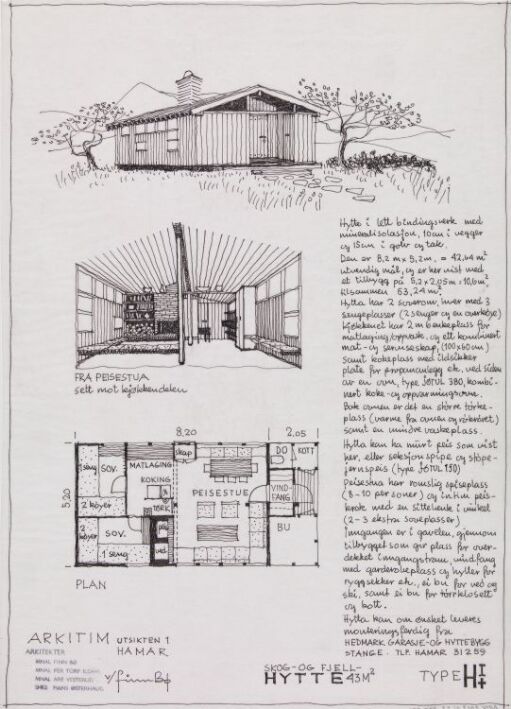 Hytte i lett bindingsverk med
mineralisolasjon, 10cm i vegger
og 15cm i golv og tak.
Den er 8,2 m x 5,2m, = 42,64 m²
utvendig mål, og er her vist med
et tilbygg på 5,2 x 2,05m = 10,6m²
tilsammen 53,24 m².
Hytta har 2 soverom, hver med 3
sengeplasser (2 senger og en overkøye)
Kjøkkenet har 2 m benkeplass for
matlaging/oppvask, og ett kombinert
mat- og serviseskap, (100x60cm)
samt kokeplass med ildsikker
plate for propananlegg ek. ved siden
av en ovn, type JØTUL 380, kombi-
nert koke- og oppvarmingsovn.
Bak ovnen er det en større tørke-
plass (varme fra ovnen og røkrøret)
samt en mindre vaskeplass.
Hytta kan ha murt peis som vist
her, eller seksjonspipe og støpe-
jernspeis (type JØTUL 150)
Peisestua har romslig spiseplass
(8-10 personer) og intim peis-
krok med en sittebenk i vinkel
(2-3 ekstra soveplasser)
Inngangen er i gavlen, gjennom
tilbygget som gir plass for over-
dekket inngangstram, vindfang
med garderobeplass og hyller for
ryggsekker ek., ei bu for ved og
ski, samt ei bu for tørrklosett
og kott.
Hytta kan om ønsket leveres
monteringsferdig fra
HEDMARK GARASJE-OG HYTTEBYGG
STANGE. TLF. HAMAR 31259
FRA PEISESTUA
sett mot kjøkkendelen
8,20
2,05
5,20
1 seng
SOV.
2 køyer
MATLAGING
KOKING
TØRK
skap
PEISESTUE
DO
KOTT
VIND-
FANG
BU
2 køyer
SOV.
1 seng
peis
ved
PLAN
ARKITIM UTSIKTEN 1
HAMAR
ARKITEKTER
MNAL FINN BØ
MNAL ARE VESTERLID
v/Finn Bø
SKOG-OG FJELL-
HYTTE 43M²
TYPE H